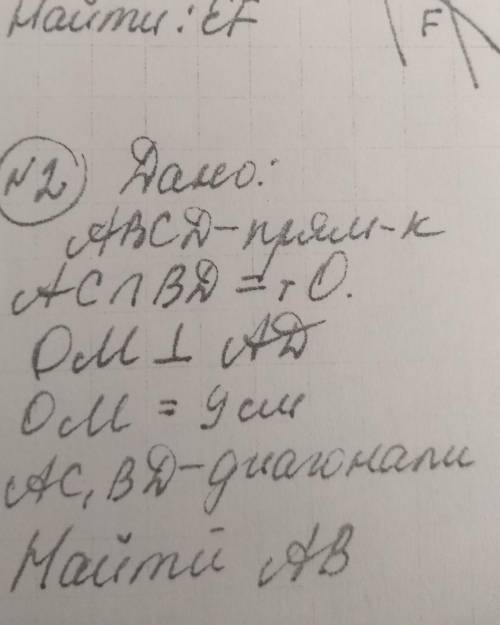 Найти: EF
F
N2 Дано:
ABCD-прям-к
AC∩BD = т O.
OM ⊥ AD
OM = 9 см
AC, BD-диагонали
Найти AB